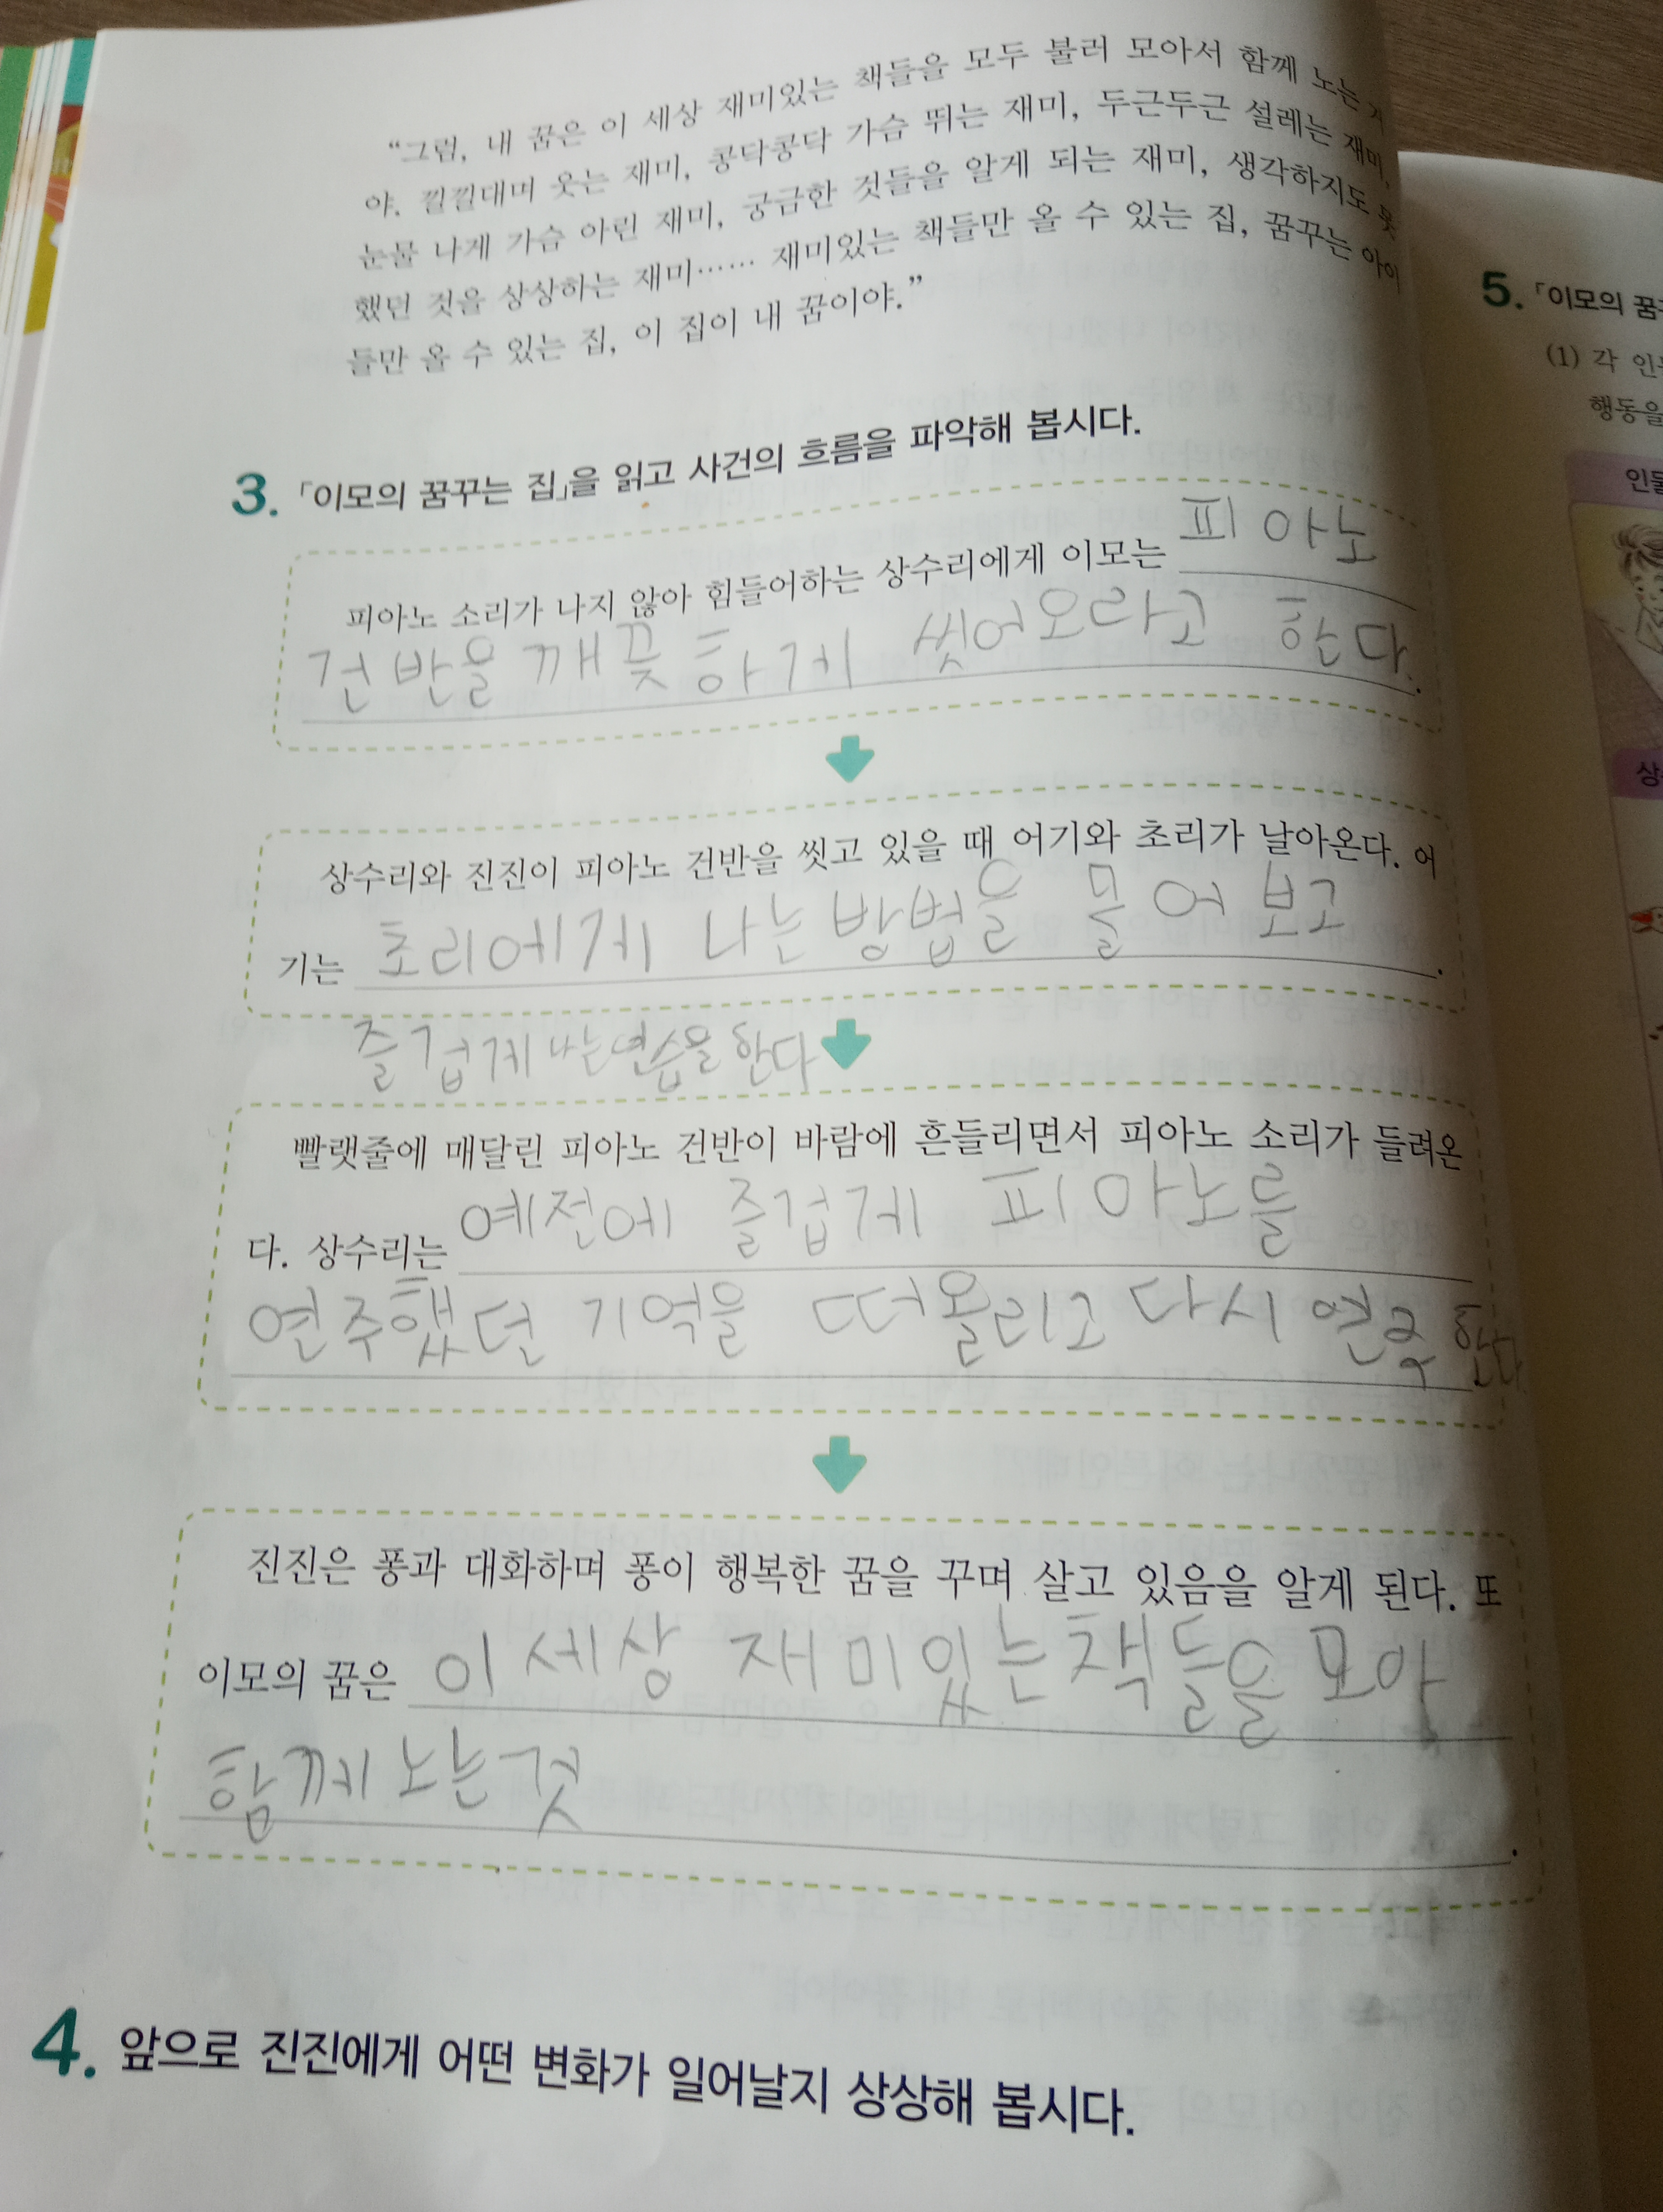 “그럼, 내 꿈은 이 세상 재미있는 책들을 모두 불러 모아서 함께 노는
야. 낄낄대며 웃는 재미, 콩닥콩닥 가슴 뛰는 재미, 두근두근 설레는 재미,
눈물 나게 가슴 아린 재미, 궁금한 것들을 알게 되는 재미, 생각하지도 못
했던 것을 상상하는 재미…… 재미있는 책들만 올 수 있는 집, 꿈꾸는 아이
들만 올 수 있는 집, 이 집이 내 꿈이야.”
3. 「이모의 꿈꾸는 집」을 읽고 사건의 흐름을 파악해 봅시다.
피아노 소리가 나지 않아 힘들어하는 상수리에게 이모는 피아노
건반을 깨끚하게 씻어오라고 한다.
상수리와 진진이 피아노 건반을 씻고 있을 때 어기와 초리가 날아온다. 어
기는 초리에게 나는 방법을 물어 보고.
즐겁게 나는 연습을 한다
빨랫줄에 매달린 피아노 건반이 바람에 흔들리면서 피아노 소리가 들려온
다. 상수리는 예전에 즐겁게 피아노를
연주했던 기억을 떠올리고 다시 연주한다
진진은 퐁과 대화하며 퐁이 행복한 꿈을 꾸며 살고 있음을 알게 된다. 또
이모의 꿈은 이 세상 재미있는 책들을 모아
함께 노는 것.
4. 앞으로 진진에게 어떤 변화가 일어날지 상상해 봅시다.
5. 「이모의 꿈
(1) 각
행동을